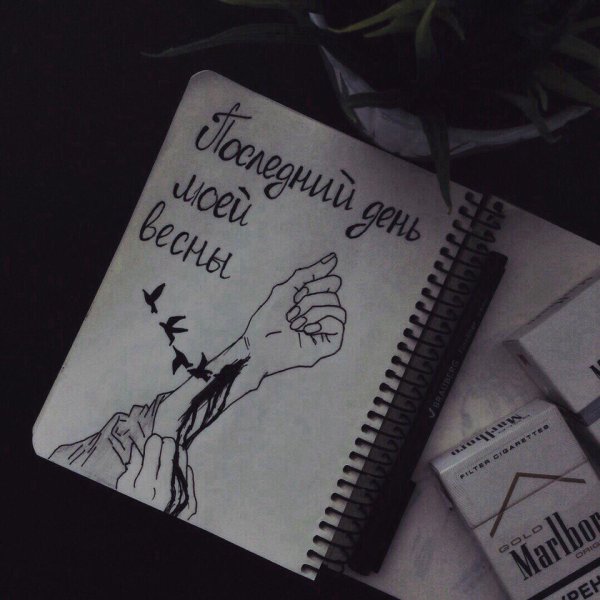 Последний день
моей
весны
BRAUBERG
Marlboro
FILTER CIGARETTES
GOLD
Marlbor
ORIG
КУРЕН